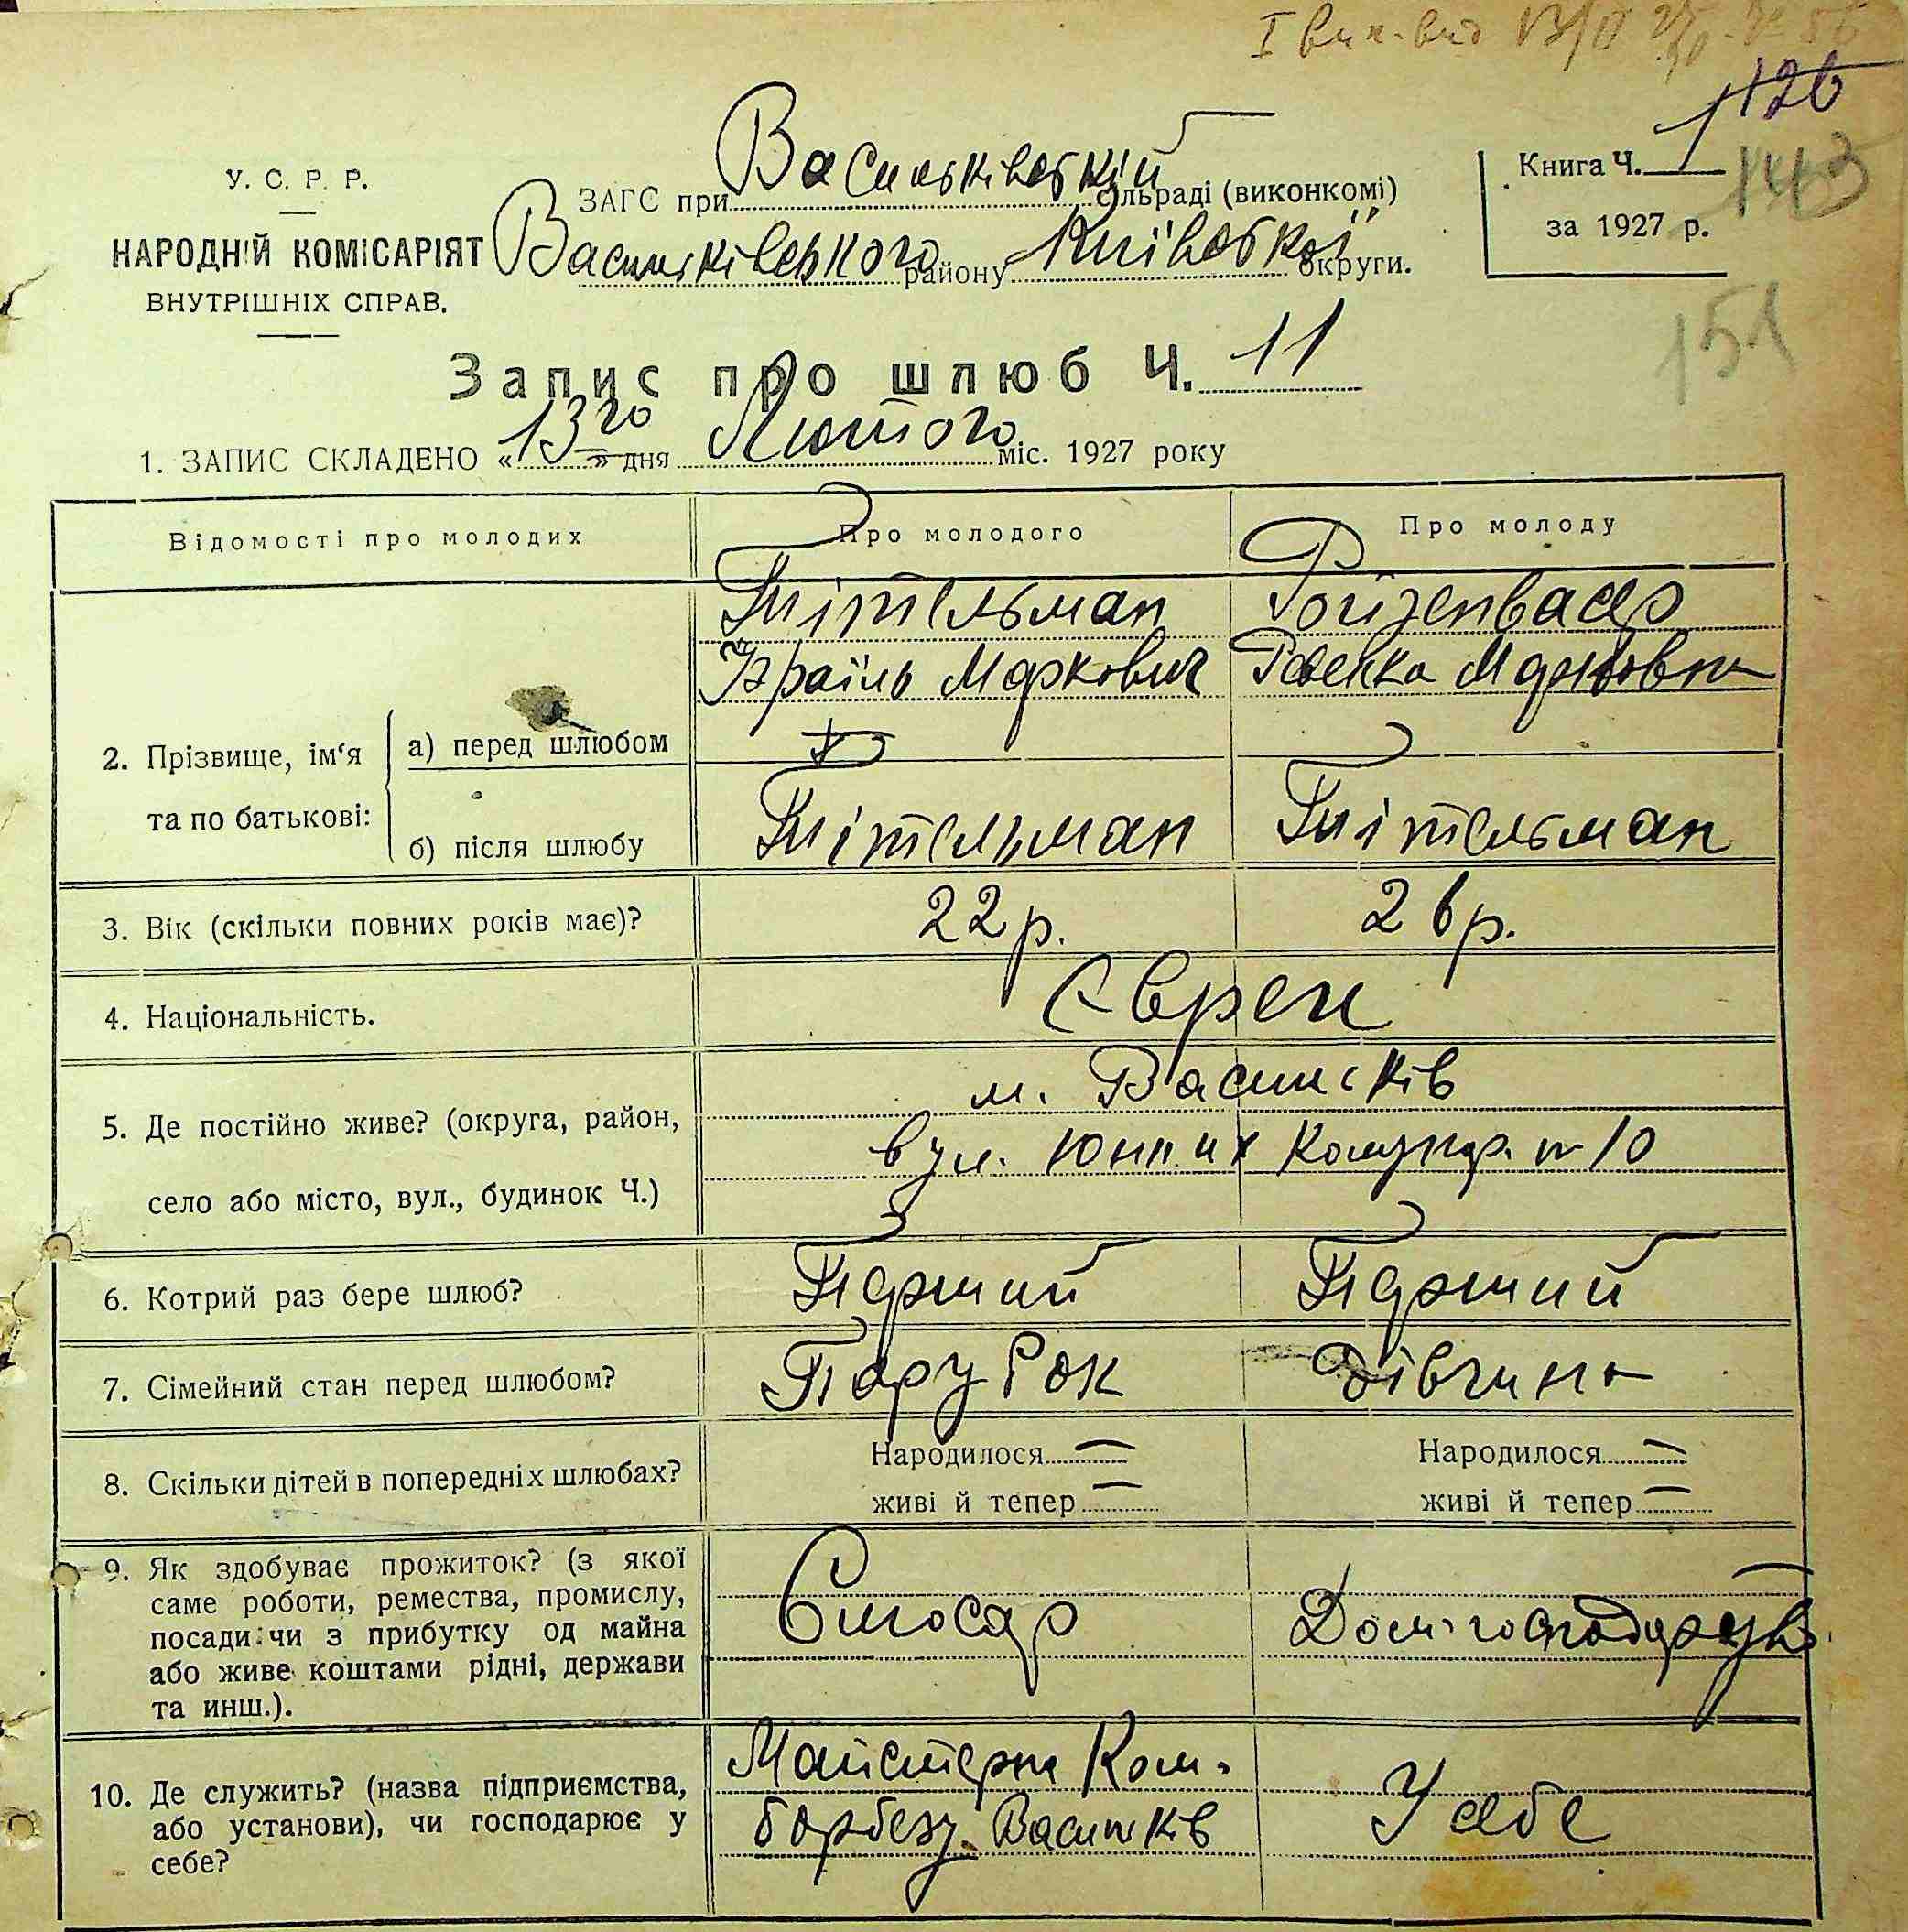 126
У. С. Р. Р.
НАРОДНІЙ КОМІСАРІЯТ
ВНУТРІШНІХ СПРАВ.
ЗАГС при Васильківській сільраді (виконкомі)
Васильківського району Київської округи.
Книга Ч. 1
за 1927 р.
143
151
Запис про шлюб Ч. 11
1. ЗАПИС СКЛАДЕНО «13го» дня Лютого міс. 1927 року
Відомості про молодих
Про молодого
Про молоду
2. Прізвище, ім'я та по батькові:
а) перед шлюбом
Гнітельман
Ізраїль Маркович
Ройзенвасер
Марковна
б) після шлюбу
Гнітельман
Гнітельман
3. Вік (скільки повних років має)?
22 р.
26 р.
4. Національність.
Євреи
5. Де постійно живе? (округа, район,
село або місто, вул., будинок Ч.)
м. Васильків
вул. Юних Комунар. № 10
6. Котрий раз бере шлюб?
Перший
Перший
7. Сімейний стан перед шлюбом?
Парубок
Дівчина
8. Скільки дітей в попередніх шлюбах?
Народилося —
живі й тепер —
Народилося —
живі й тепер —
9. Як здобуває прожиток? (з якої
саме роботи, ремества, промислу,
посади чи з прибутку од майна
або живе коштами рідні, держави
та инш.).
Слюсар
Дом-господарств
10. Де служить? (назва підприємства,
або установи), чи господарює у
себе?
Майстерня Ком.
борбезу. Васильків
У себе